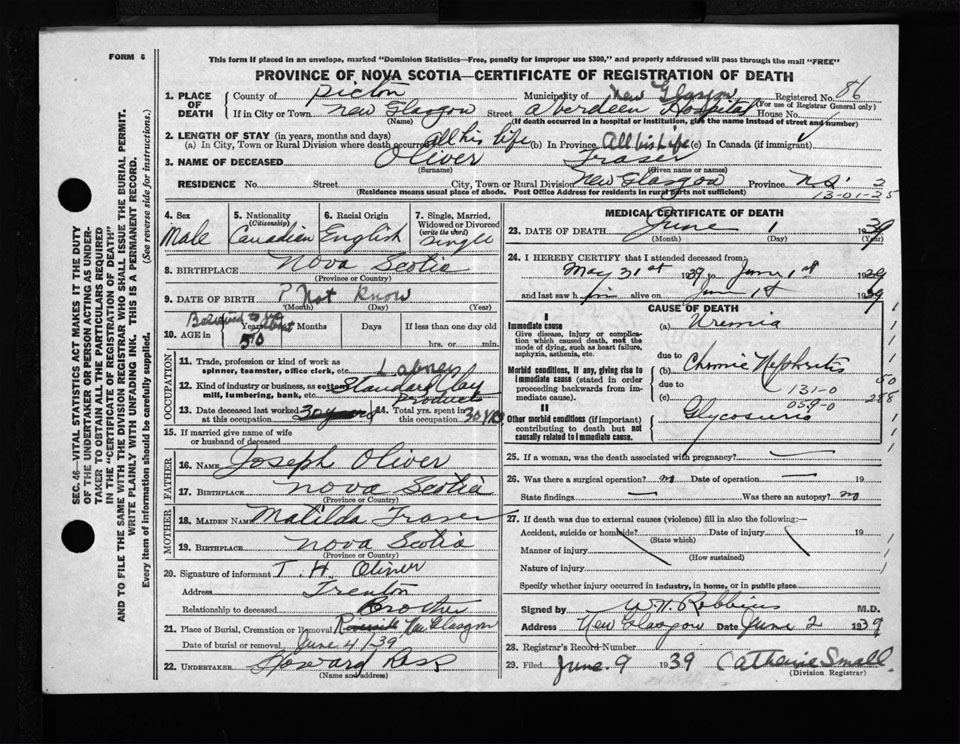 FORM 6
This form if placed in an envelope, marked "Dominion Statistics—Free, penalty for improper use $300," and properly addressed will pass through the mail "FREE"
PROVINCE OF NOVA SCOTIA—CERTIFICATE OF REGISTRATION OF DEATH
1. PLACE OF DEATH
County of Pictou Municipality of New Glasgow Registered No. 86
(For use of Registrar General only)
If in City or Town New Glasgow Street Aberdeen Hospital House No.
(Name) (If death occurred in a hospital or institution, give the name instead of street and number)
2. LENGTH OF STAY (in years, months and days)
(a) In City, Town or Rural Division where death occurred all his life (b) In Province All his Life (c) In Canada (if immigrant)
3. NAME OF DECEASED Oliver Fraser
(Surname) (Given name or names)
RESIDENCE No. Street City, Town or Rural Division New Glasgow Province N.S.
(Residence means usual place of abode. Post Office Address for residents in rural parts not sufficient)
13-01-25
4. Sex Male
5. Nationality (Citizenship) Canadian
6. Racial Origin English
7. Single, Married, Widowed or Divorced (write the word) Single
8. BIRTHPLACE Nova Scotia
(Province or Country)
9. DATE OF BIRTH Not Know
(Month) (Day) (Year)
10. AGE in Believed to be about 50
Years Months Days If less than one day old
hrs. or min.
OCCUPATION
11. Trade, profession or kind of work as spinner, teamster, office clerk, etc. Labner
12. Kind of industry or business, as cotton mill, lumbering, bank, etc. Standard Clay Products
13. Date deceased last worked at this occupation 30 years
14. Total yrs. spent in this occupation 30 yrs
15. If married give name of wife or husband of deceased
FATHER
16. NAME Joseph Oliver
17. BIRTHPLACE Nova Scotia
(Province or Country)
MOTHER
18. MAIDEN NAME Matilda Fraser
19. BIRTHPLACE Nova Scotia
(Province or Country)
20. Signature of informant T. H. Oliver
Address Trenton
Relationship to deceased Brother
21. Place of Burial, Cremation or Removal Riverside New Glasgow
Date of burial or removal June 4/39
22. UNDERTAKER Howard Ross
(Name and address)
MEDICAL CERTIFICATE OF DEATH
23. DATE OF DEATH June 1 1939
(Month) (Day) (Year)
24. I HEREBY CERTIFY that I attended deceased from
May 31st 1939 to June 1st 1939
and last saw him alive on June 1st 1939
CAUSE OF DEATH
I
Immediate cause
Give disease, injury or complication which caused death, not the mode of dying, such as heart failure, asphyxia, asthenia, etc.
(a) Uremia
due to
Morbid conditions, if any, giving rise to immediate cause (stated in order proceeding backwards from immediate).
(b) Chronic Nephritis
due to
131-0
059-0
(c)
II
Other morbid conditions (if important) contributing to death but not causally related to immediate cause.
Glycosuria
25. If a woman, was the death associated with pregnancy?
26. Was there a surgical operation? no Date of operation 19
State findings Was there an autopsy? no
27. If death was due to external causes (violence) fill in also the following:—
Accident, suicide or homicide? Date of injury 19
(State which)
Manner of injury
(How sustained)
Nature of injury
Specify whether injury occurred in industry, in home, or in public place
Signed by W. N. Robbins M.D.
Address New Glasgow Date June 2 1939
28. Registrar's Record Number
29. Filed June 9 1939 Catherine Small
(Division Registrar)
SEC. 46—VITAL STATISTICS ACT MAKES IT THE DUTY
OF THE UNDERTAKER OR PERSON ACTING AS UNDERTAKER TO OBTAIN ALL THE PARTICULARS REQUIRED
IN THE "CERTIFICATE OF REGISTRATION OF DEATH"
AND TO FILE THE SAME WITH THE DIVISION REGISTRAR WHO SHALL ISSUE THE BURIAL PERMIT.
WRITE PLAINLY WITH UNFADING INK. THIS IS A PERMANENT RECORD.
Every item of information should be carefully supplied. (See reverse side for instructions.)